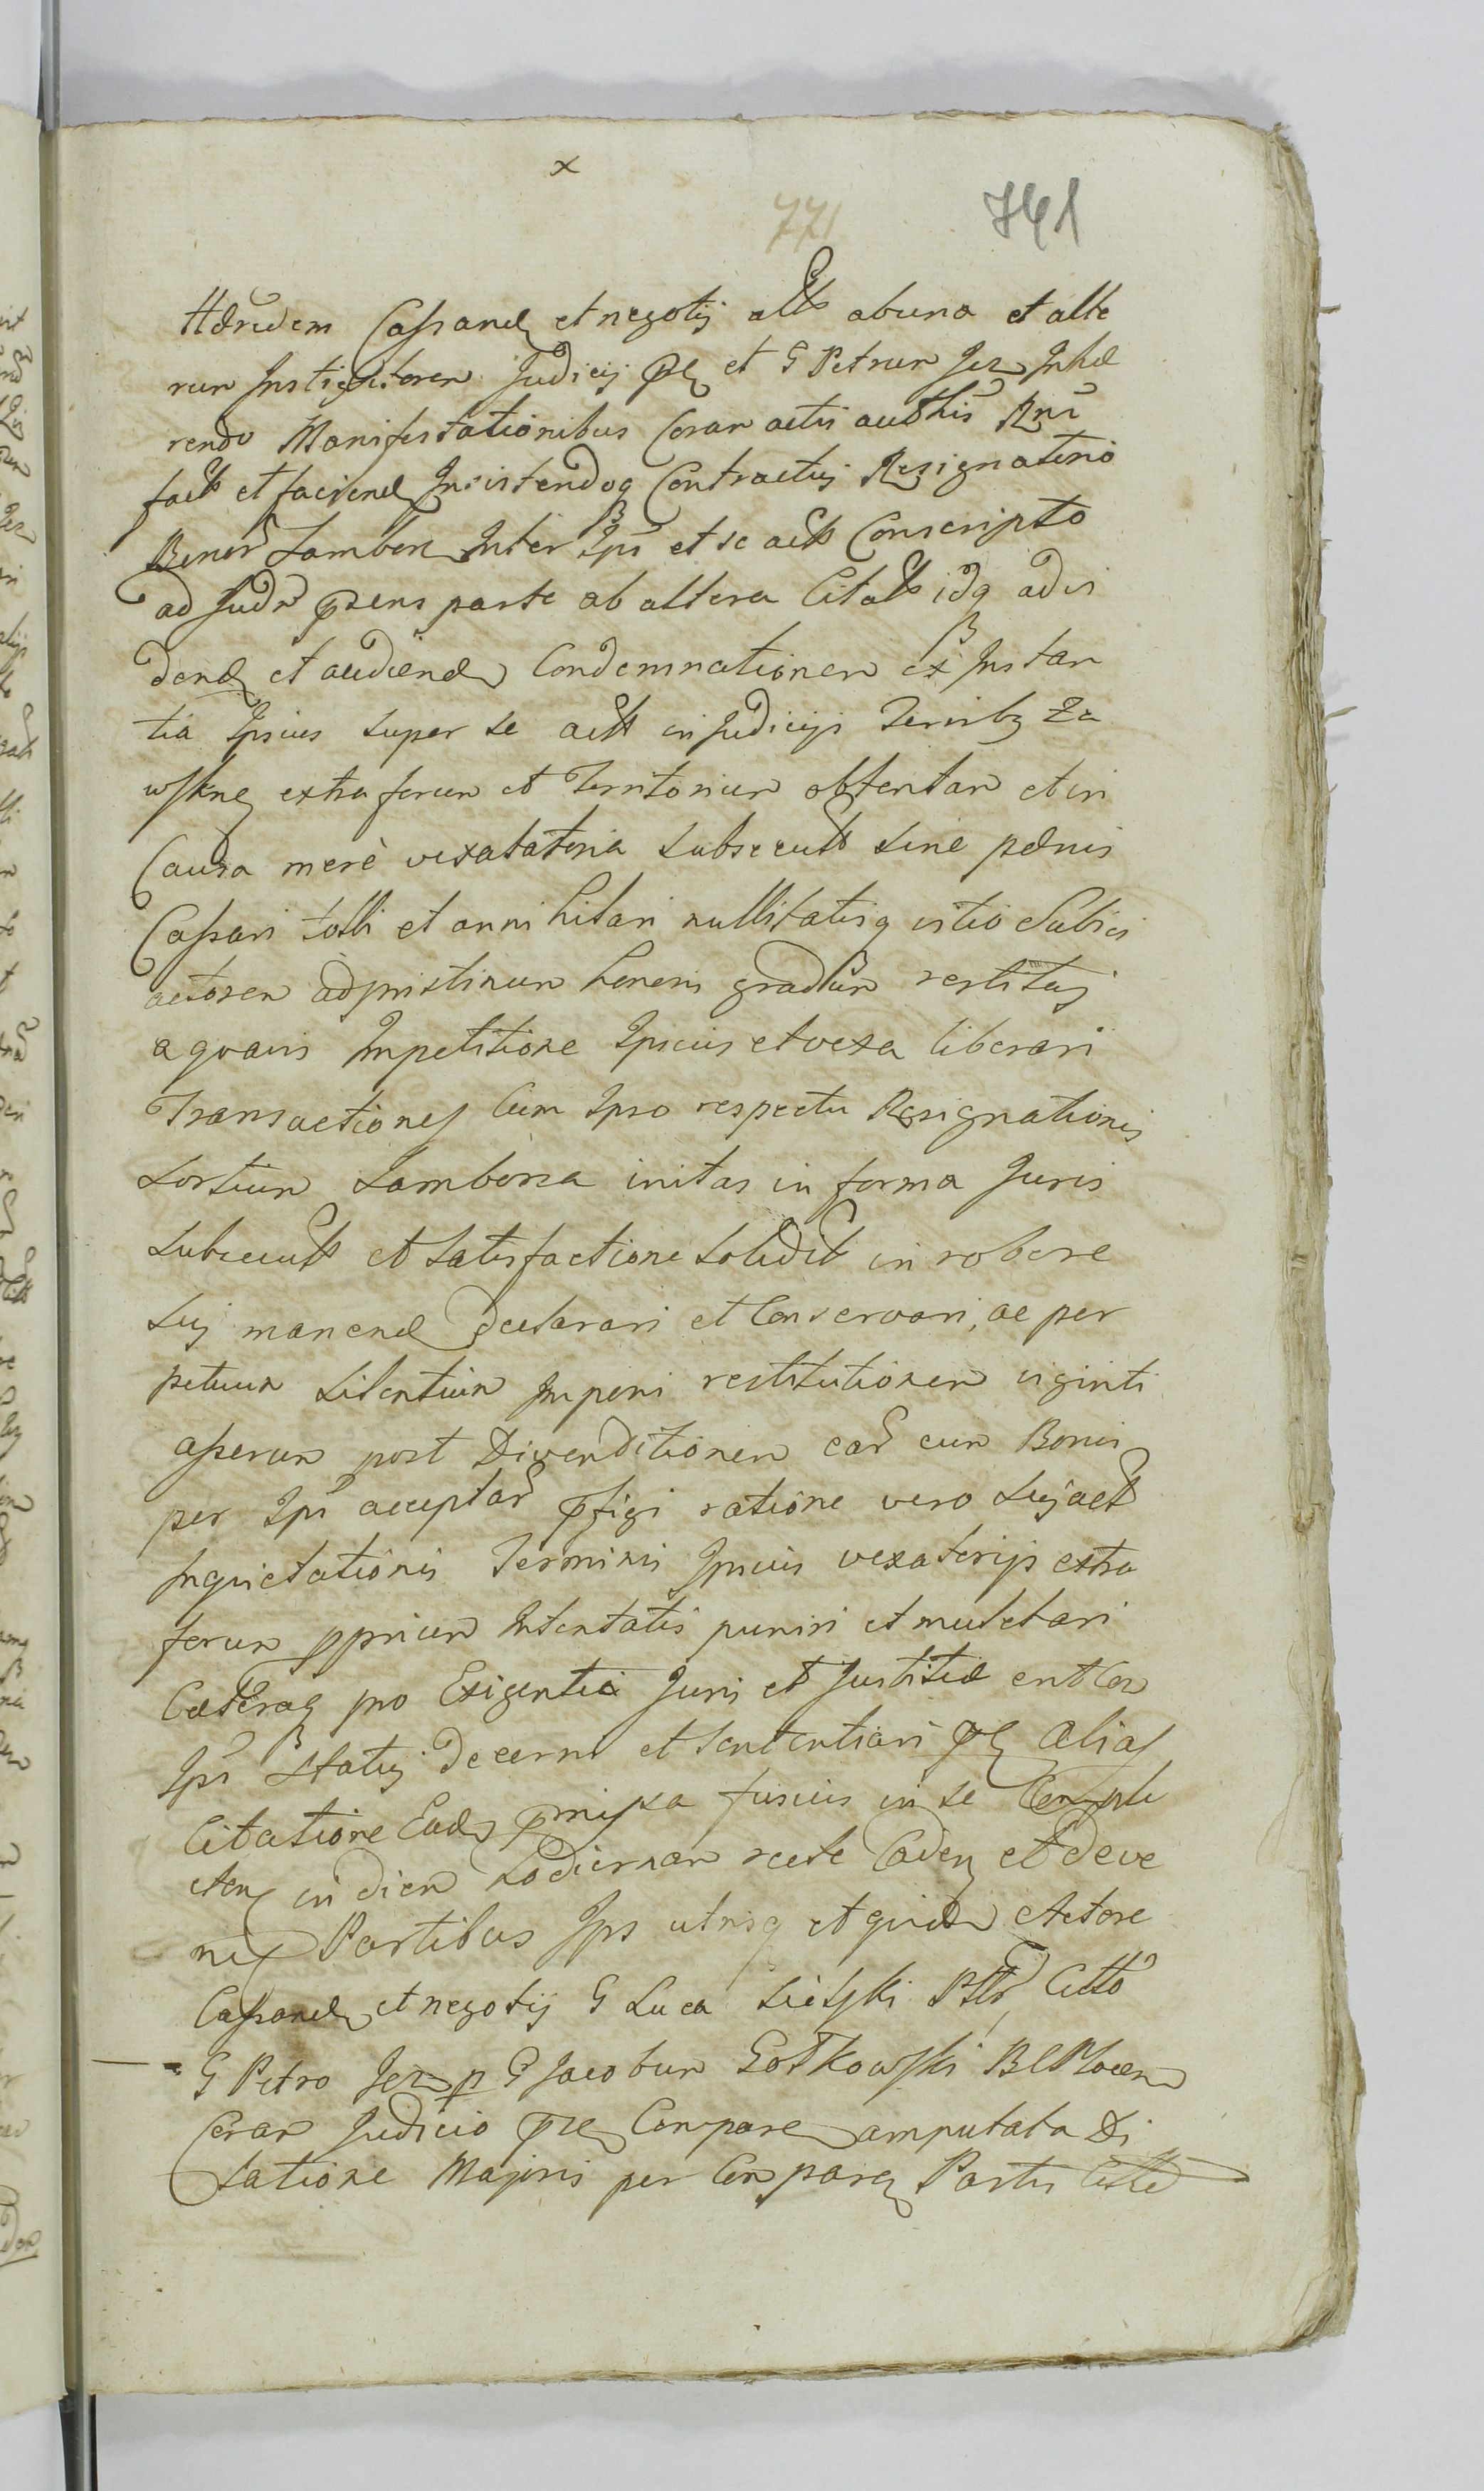 x
771 741
Hæredem Cassand et negotij actt ab una et alte
rum Instigatorem Judicij pnt et G Petrum Jez Inhæ
rendo Manifestationibus Coram actis authcis Rni
fact et faciend Insistendoq Contractuj Resignatorio
Bonor Sambory Inter Ips et se actt Conscripto
ad Judm præsens parte ab altera Citatt idq ad vi
dend et audiend Condemnationem ex Instan
tia Ipsius super se actt in Judicijs Terrirbq Za
wskrn extra forum et Territorium obtentam et in
Causa merè vexatatoria subsecutt sine pænis
Cassari tolli et annihilari nullitatisq vitio Subici
actorem ad pristinum honoris gradum restituj
a quavis Impetitione Ipsius et vexa liberari
Transactiones Cum Ipso respectu Resignationis
Sortium Samborza initas in forma Juris
subsecutt et satisfactione solidit in robore
suj manend declarari et Conservari, ac per
petuum silentium Imponi restitutionem viginti
asserum post Divenditionem ear cum Bonis
per Ips acceptar præfigi ratione vero suj act
Inquietationis Terminis Ipsius vexatorijs extra
forum pprium Intentatis puniri et mulctari
Cæteraq pro Exigentia Juris et Justitiæ ent Con
Ips Statuj decerni et sententiari pnt Alias
Citatione Ead præmissa fusius in se Comple
cten in diem hodiernam recte Caden et deve
nien Partibus Ips utrisq et quidem Actore
Cassand et negotij G Luca Sielski Citto
G Petro Jez p G Jacobum Gotkowski
Coram Judicio præn Comparen amputata Di
latione Majoris per Comparen Partis Cittæ